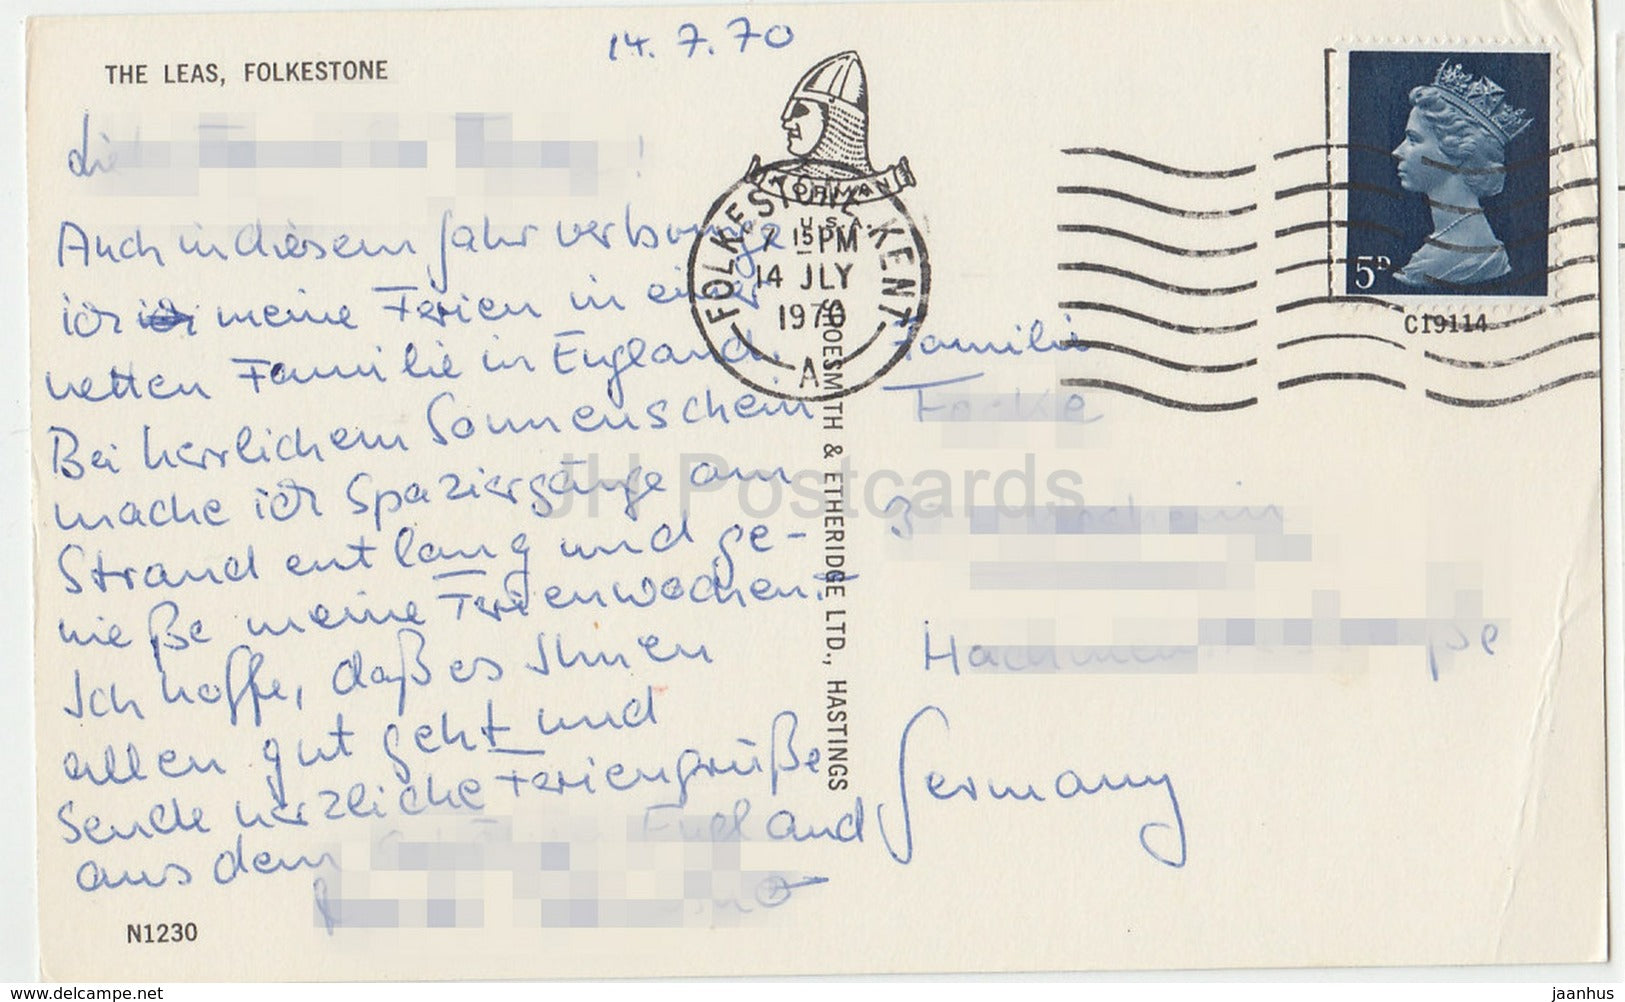 14.7.70
THE LEAS, FOLKESTONE
Auch in diesem Jahr verbringe
ich ich meine Ferien in einer
netten Familie in England.
Bei herrlichem Sonnenschein
mache ich Spaziergänge am
Strand entlang und ge-
nieße meine Ferienwochen.
Ich hoffe, daß es Ihnen
allen gut geht und
sende herzliche Feriengrüße
aus dem England
N1230
NORMAN
U.S.A.
FOLKESTONE KENT
7 15 PM
14 JLY
1970
A
SHOESMITH & ETHERIDGE LTD., HASTINGS
5D
C19114
Familie
3
Germany
JH Postcards
www.delcampe.net
jaanhus